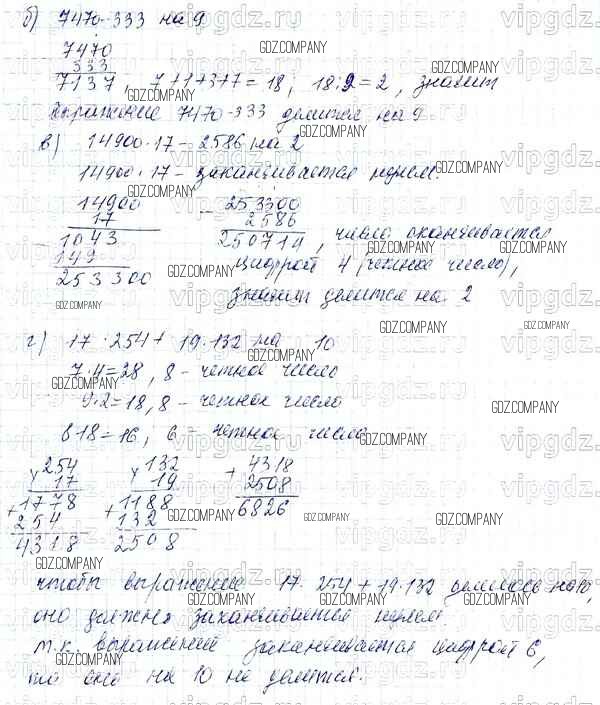 б) 7470-333 на 9
7470
333
7137, 7+1+3+7=18; 18:9=2, значит
выражение 7470-333 делится на 9
в) 14900·17-2586 на 2
14900·17 - заканчивается нулем.
14900
17
1043
149
253300
- 253300
2586
250714, число оканчивается
цифрой 4 (четное число),
значит делится на 2
г) 17·254+19·132 на 10
7·4=28, 8 - четное число
9·2=18, 8 - четное число
8+8=16, 6 - четное число
254
17
+1778
254
4318
132
19
+1188
132
2508
+4318
2508
6826
чтобы выражение 17·254+19·132 делилось на 10,
оно должно заканчиваться нулем.
т.к. выражение заканчивается цифрой 6,
то оно на 10 не делится.
GDZ.COMPANY
vipgdz.ru